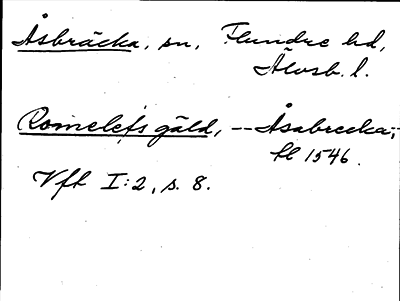 Åsbräcka, sn, Flundre hd,
Älvsb. l.
Romelefs gäld, -- Åsabrecka;
hl 1546.
Vfh I:2, s. 8.